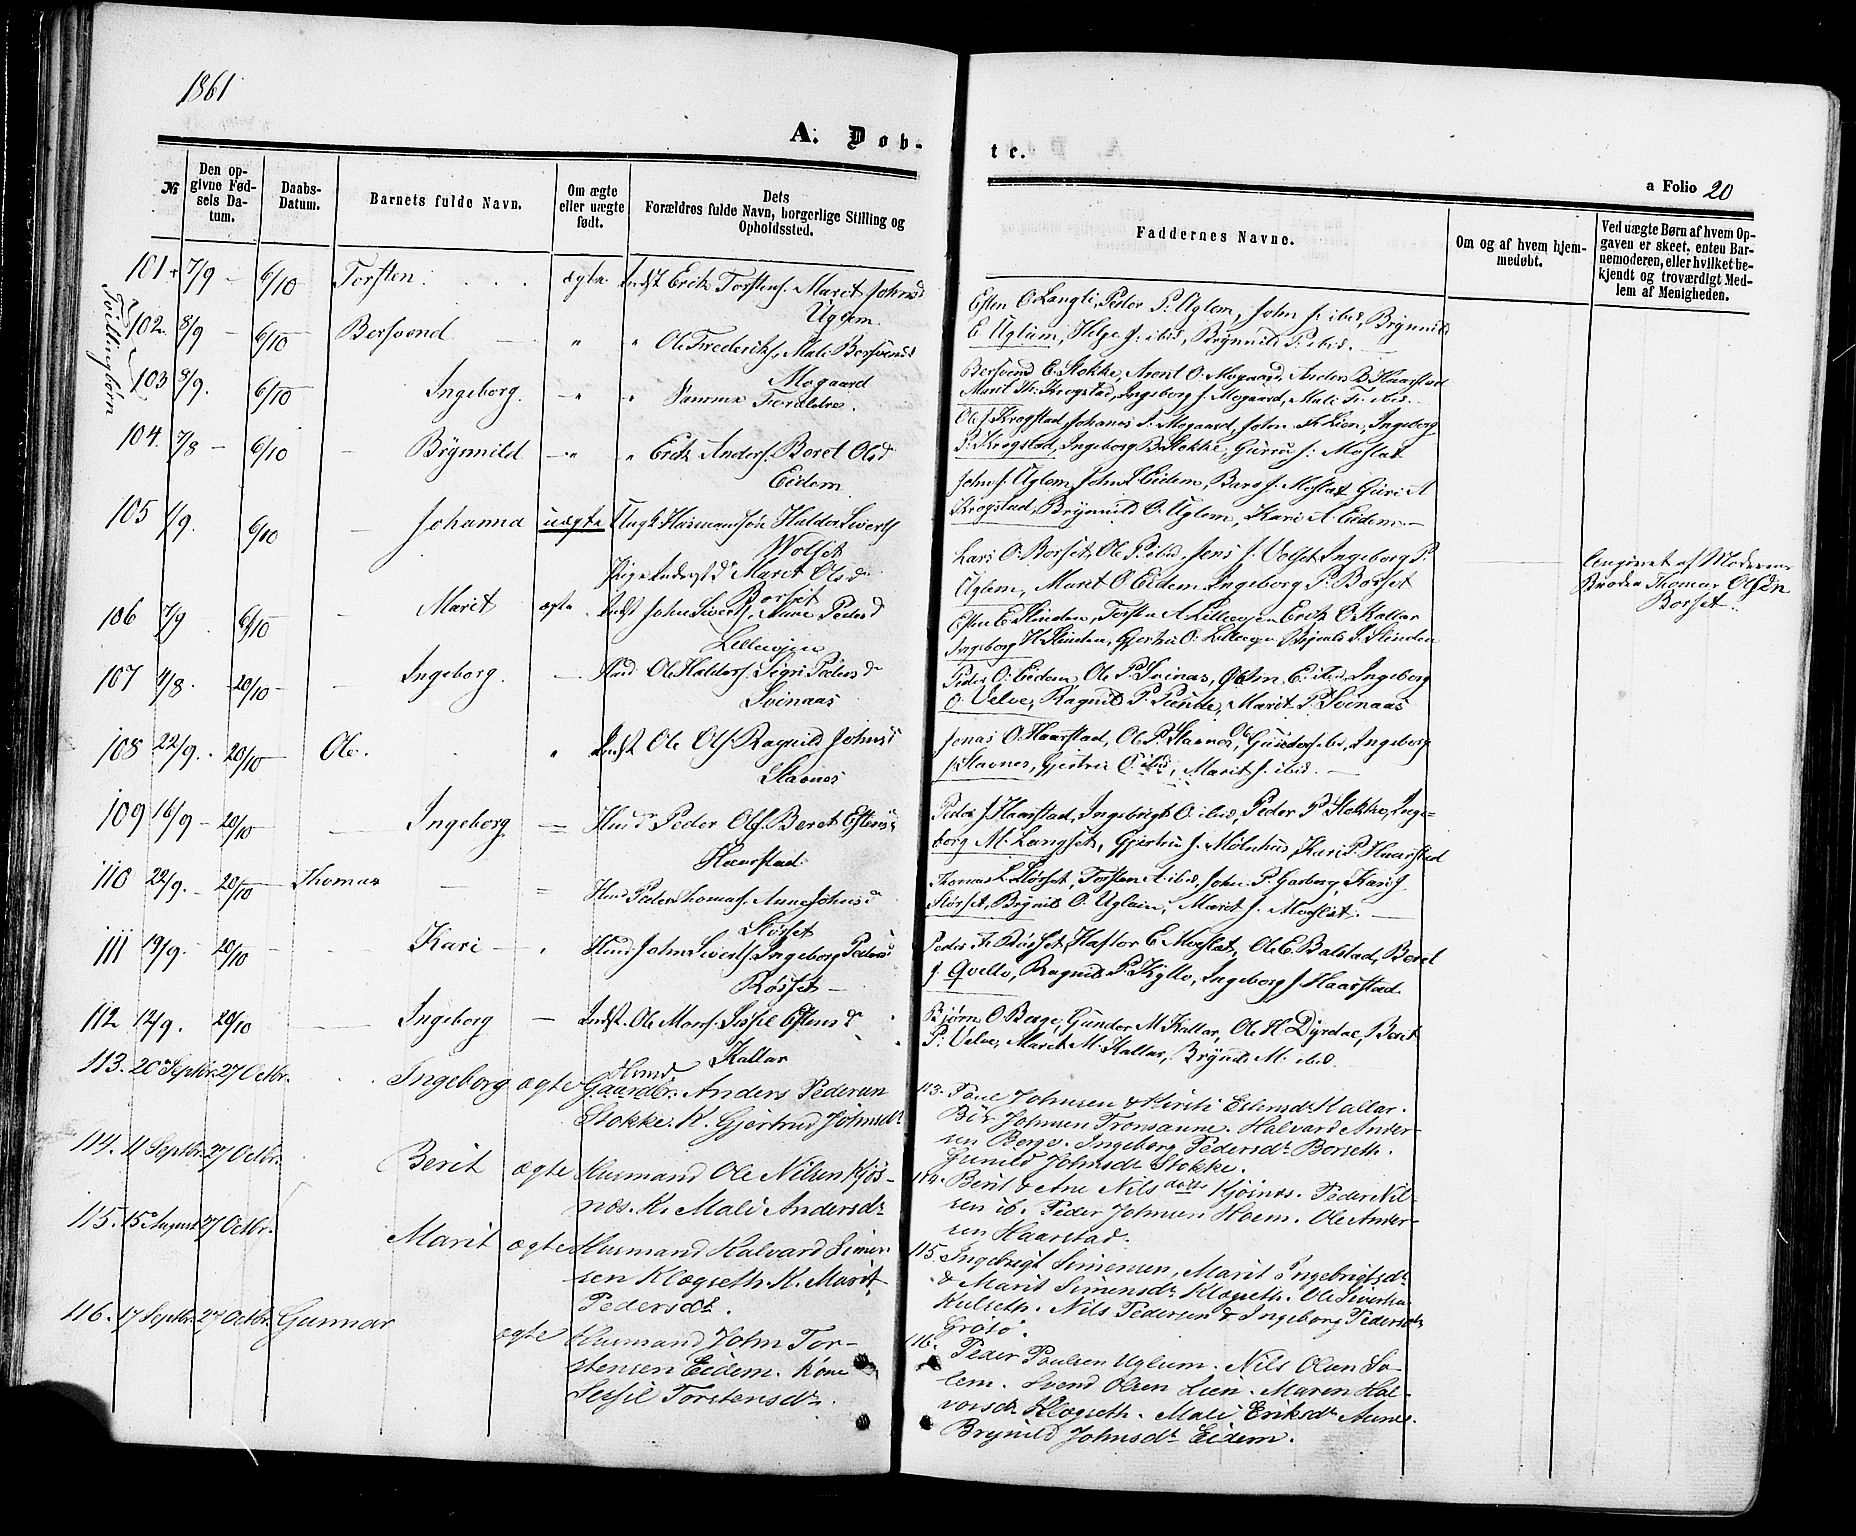 1861
A. Døb-
te.
a Folio 20
№
Den opgivne Fødsels Datum.
Daabs-Datum.
Barnets fulde Navn.
Om ægte eller uægte født.
Dets Forældres fulde Navn, borgerlige Stilling og Opholdssted.
Faddernes Navne.
Om og af hvem hjemmedøbt.
Ved uægte Børn af hvem Opgaven er skeet, enten Barnemoderen, eller hvilket bekjendt og troværdigt Medlem af Menigheden.
Tvillingbørn
101 7/9 - 6/10 Torsten ægte Indst Erik Torstens. Marit Johnsd
Uglem
Esten O. Langli, Peder P. Uglem, John J. ibid, Brynnild
E. Uglum, Helge J. ibid, Brynnild P. ibid.
102. 8/9 - 6/10 Bersvend " " Ole Frederiks. Mali Bersvensd
Mogaard
Bersvend E. Stokke, Arent O. Mogaard, Anders B. Haarstad
Marit Fr. Krogstad, Ingeborg J. Mogaard, Mali Fr. ibid.
103 8/9. 6/10 Ingeborg. " " Samme Forældre.
Ole J. Krogstad, Johanes J. Mogaard, John Fr. Lien, Ingeborg
P. Krogstad, Ingeborg B. Stokke, Guru J. Moslat
104. 7/8 - 6/10 Brynnild " " Erik Anders. Beret Olsd
Eidem
John J. Uglem, John E. Eidem, Baro J. Moslat, Guri A
Krogstad, Brynnild O. Uglem, Kari A. Eidem
105 1/9. 6/10 Johanna uægte Ungk. Husmandsøn Haldor Siverts
Wolset
Pige Inderst d. Marit Olsd.
Borset
Lars O. Borset, Ole P. ibid, Jens J. Volset, Ingeborg P.
Uglem, Marit O. Eidem, Ingeborg P. Borset
Angivet af Moderens
Broder Thomas Olsen
Borset.
106 7/9 6/10 Marit ægte Indst John Siverts, Anne Pedersd
Lillevjen
Esten E. Slinden, Torsten A. Lillevjen, Erik O. Kallar
Ingeborg H. Slinden, Gjertru O. Lillevjen
107 4/8. 20/10 Ingeborg. Hmd Ole Haldors. Sigri Pedersd
Svinaas
Peder O. Eidem, Ole P. Svinas, John E. ibid, Ingeborg
O. Velve, Ragnild P. Rønde, Marit P. Svinaas
108 22/9. 20/10 Ole. " Indst Ole Ols. Ragnild Johnsd
Stavnes
Jonas O. Haarstad, Ole P. Stavnes, Gunder J. ibid, Ingeborg
J. Stavnes, Gjertru O. ibid, Marit J. ibid.
109 16/9 - 20/10 Ingeborg Hmd Peder Ols. Beret Estensd
Haarstad
Peder J. Haarstad, Ingebrigt O. ibid, Peder P. Stokke, Inge-
borg M. Langset, Gjertru J. Mølnhus, Kari P. Haarstad
110 22/9. 20/10 Thomas Hmd Peder Thomas. Anne Johnsd
Størset
Thomas L. Størset, Torsten A. ibid, John P. Garberg, Kari J.
Størset, Brynild O. Uglem, Marit J. Moslet.
111 19/9. 20/10 Kari " Hmd John Siverts. Ingeborg Pedersd
Røsset
Peder Fr. Røsset, Haftor E. Moslat, Ole E. Balstad, Beret
J. Qvello, Ragnild P. Kyllo, Ingeborg J. Haarstad
112 12/9. 20/10 Ingeborg Indst. Ole Mons. Sissil Estensd
Kallar
Bjørn O. Berge, Gunder M. Kallar, Ole H. Dyrdal, Berit
P. Velve, Marit M. Kallar, Brynild M. ibid.
113. 20 Septbr. 27 Octbr. Ingeborg ægte Hmd
Gaardbr. Anders Pedersen
Stokke. K. Gjertrud Johnsdr
113. Poul Johnsen & Kirsti Estensdr Kallar.
Bør Johnsen Fronsaune. Halvard Ander-
sen Berge. Ingeborg Pedersdr Borseth.
Gunild Johnsdr Stokke.
114. 4 Septbr. 27 Octbr. Berit ægte Husmand Ole Nilsen Kjøs-
nes. K. Mali Andersdr
114. Berit & Ane Nilsdøtr Kjøsnes. Peder Nil-
sen ib. Peder Johnsen Hoem. Ole Ander-
sen Haarstad.
115. 15 August 27 Octbr. Marit ægte Husmand Halvard Simen-
sen Klogseth. K. Marit
Pedersdr.
115. Ingebrigt Simensen, Marit Ingebrigtsdr
& Marit Simensdr Klogseth. Ole Siverts
Kulseth. Nils Pedersen & Ingeborg Pedersdr
Grøsø.
116. 17 Septbr. 27 Octbr. Gunnar ægte Husmand John Tor-
stensen Eidem. Kone
Sissil Torstensdr.
116. Peder Poulsen Uglum. Nils Olsen So-
lem. Svend Olsen Lien. Maren Hal-
vorsdr Klogseth. Mali Eriksdr Aune.
Brynild Johnsdr Eidem.